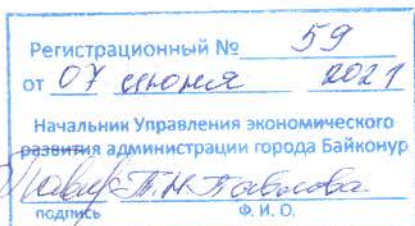 Регистрационный № 59
от 07 июня 2021
Начальник Управления экономического
развития администрации города Байконур
Т.Н. Павлова
подпись Ф. И. О.